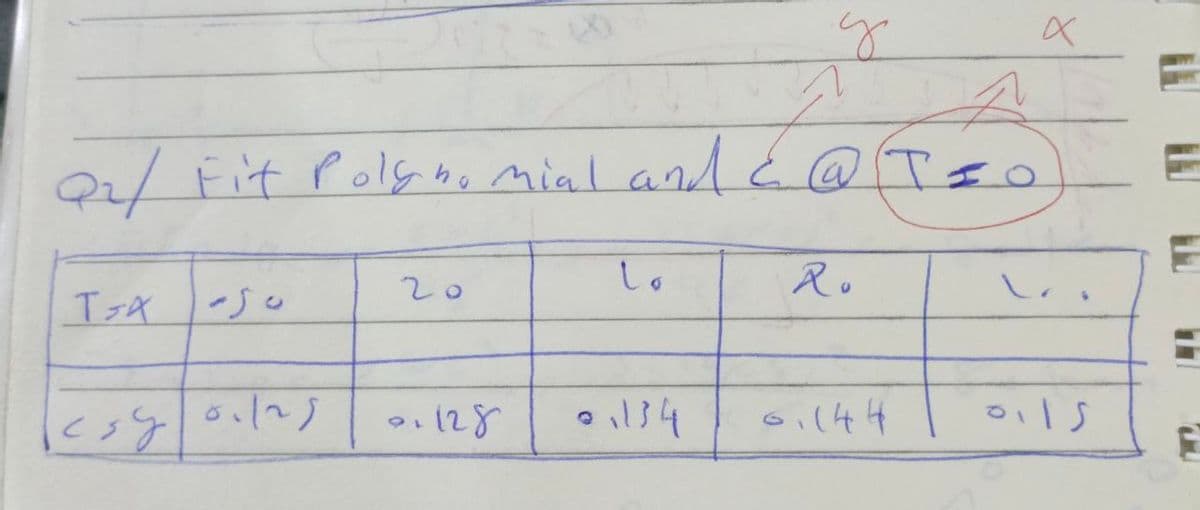 y x
Q2/ Fit Polynomial and c @ T=0
T=x -50 20 10 100
c=y 0.125 0.128 0.134 0.144 0.15